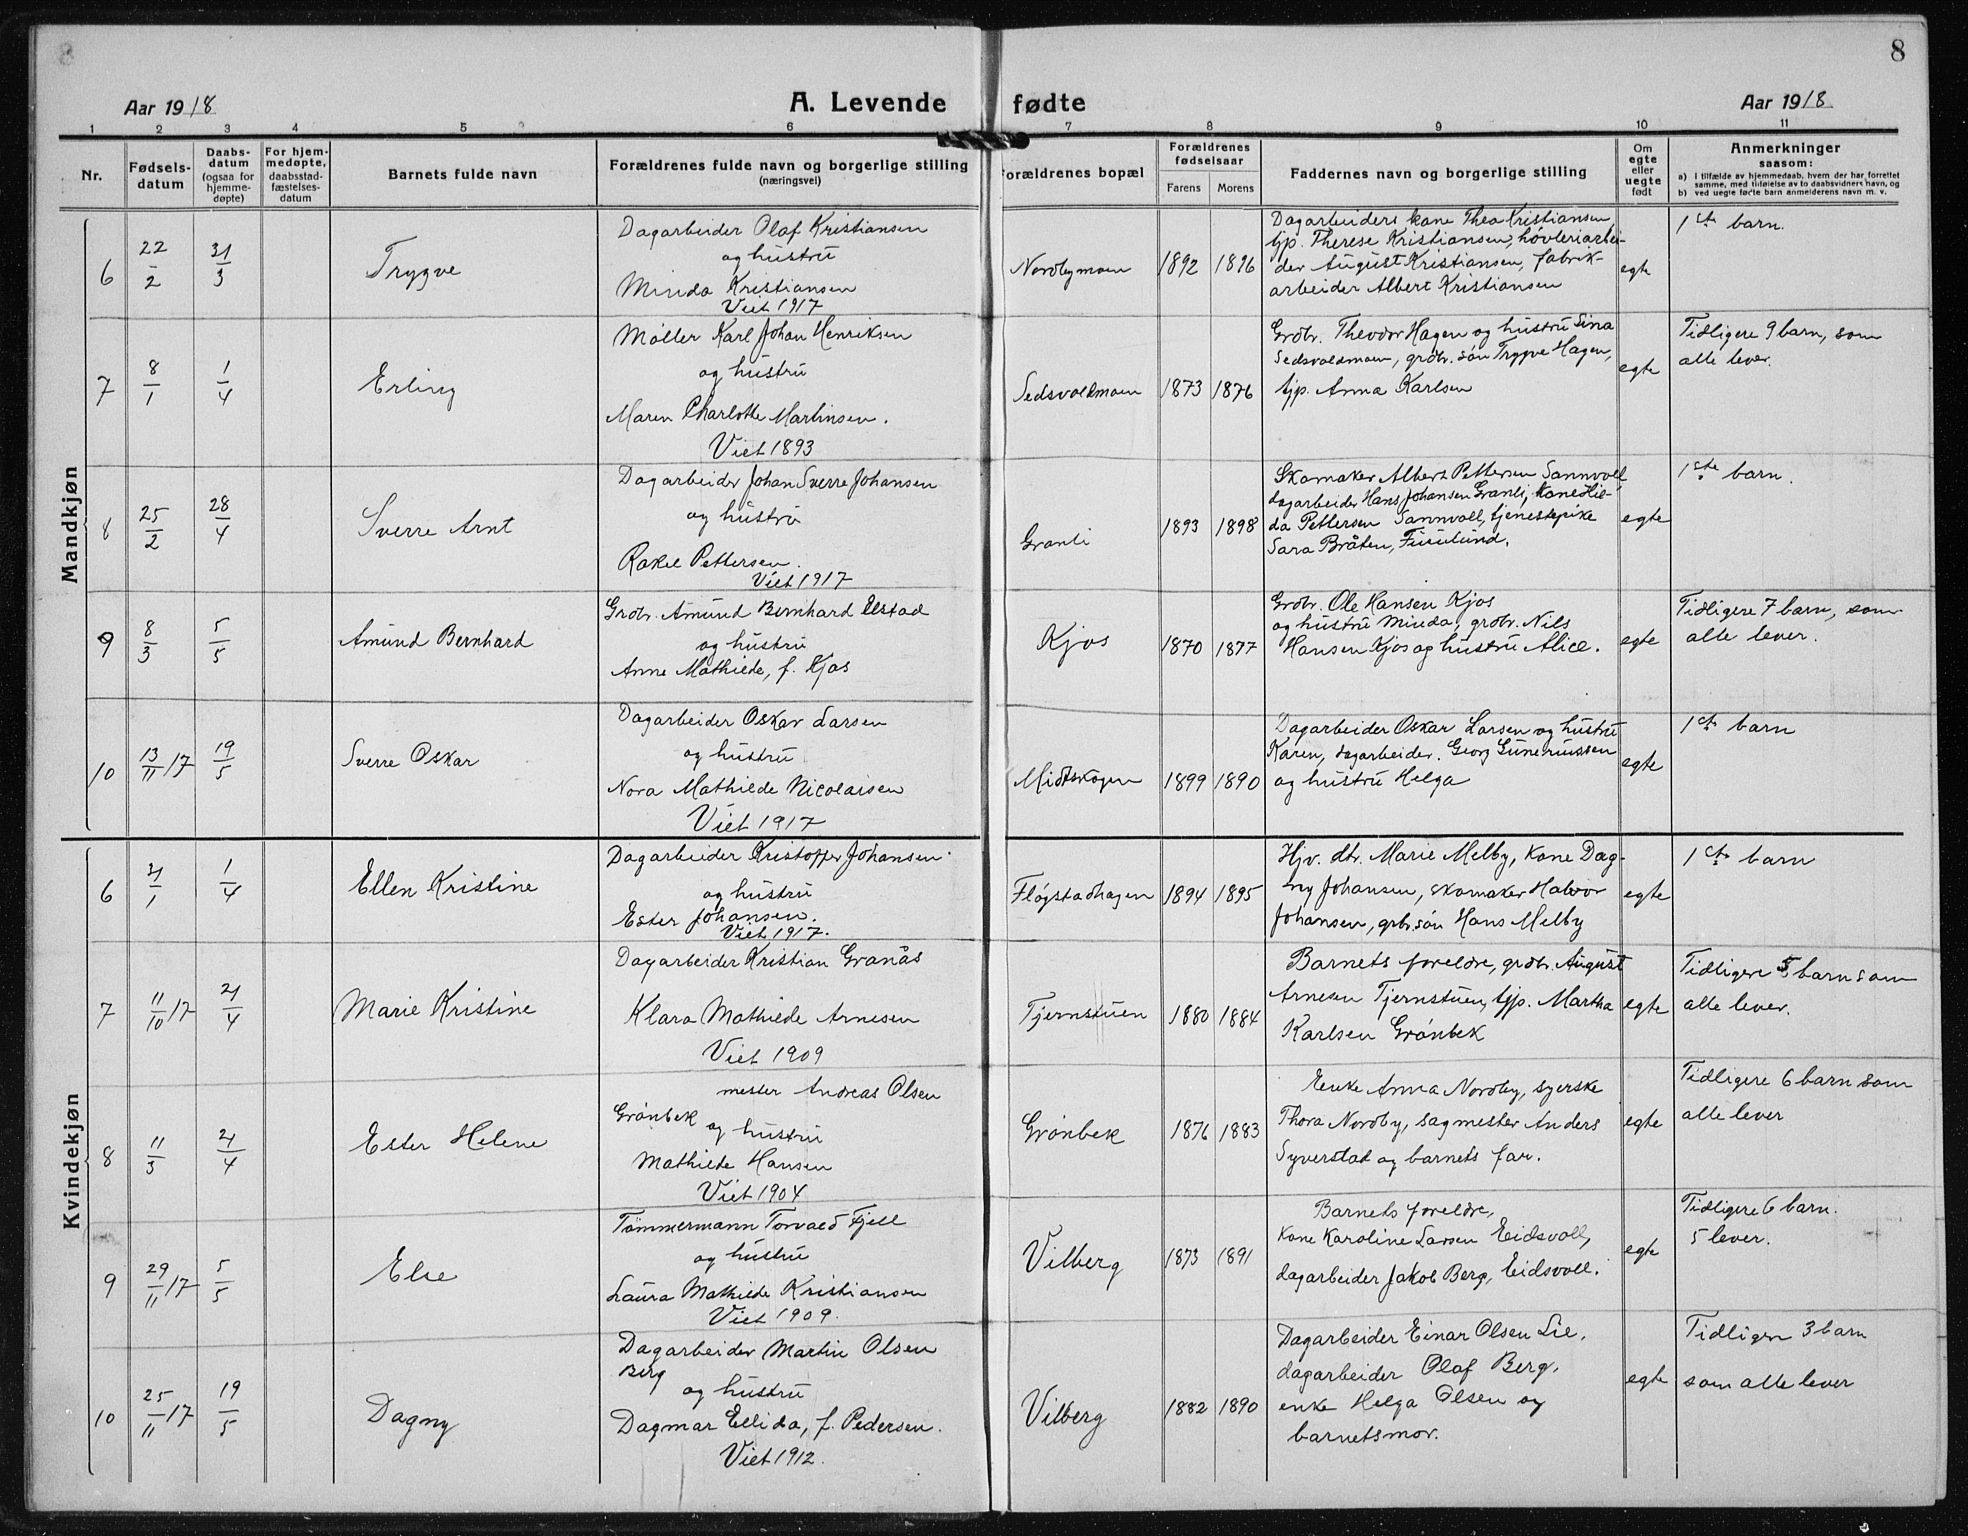 8
8
Aar 1918
A. Levende fødte
Aar 1918
1 2 3 4 5 6 7 8 9 10 11
Nr.
Fødsels-
datum
Daabs-
datum
(ogsaa for
hjemme-
døpte)
For hjem-
medøpte,
daabsstad-
fæstelses-
datum
Barnets fulde navn
Forældrenes fulde navn og borgerlige stilling
(næringsvei)
Forældrenes bopæl
Forældrenes
fødselsaar
Farens Morens
Faddernes navn og borgerlige stilling
Om
egte
eller
uegte
født
Anmerkninger
saasom:
a) i tilfælde av hjemmedaab, hvem der har forrettet
samme, med tilføielse av to daabsvidners navn, og
b) ved uegte fødte barn anmelderens navn m. v.
Mandkjøn
6
22/2
31/3
Trygve
Dagarbeider Olaf Kristiansen
og hustru
Minda Kristiansen
Viet 1917
Nordbymoen
1892 1896
Dagarbeiders kone Thea Kristiansen,
tjp. Therese Kristiansen, høvleriarbei-
der August Kristiansen, fabrik-
arbeider Albert Kristiansen
egte
1ste barn.
7
8/1
1/4
Erling
Møller Karl Johan Henriksen
og hustru
Maren Charlotte Martinsen.
Viet 1893
Sedsvoldmoen
1873 1876
Grdbr. Theodor Hagen og hustru Lina
Sedsvoldmoen, grdbr. søn Trygve Hagen,
tjp. Anna Karlsen
egte
Tidligere 9 barn, som
alle lever.
8
25/2
28/4
Sverre Arnt
Dagarbeider Johan Sverre Johansen
og hustru
Rakel Pettersen.
Viet 1917
Granli
1893 1898
Skomaker Albert Pettersen Sannvoll,
dagarbeider Hans Johansen Granli, kone Hil-
da Pettersen Sannvoll, tjenestepike
Sara Bråten, Furulund.
egte
1ste barn.
9
8/3
5/5
Amund Bernhard
Grdbr. Amund Bernhard Elstad
og hustru
Anne Mathilde, f. Kjos
Kjos
1870 1877
Grdbr. Ole Hansen Kjos
og hustru Minda, grdbr. Nils
Hansen Kjos og hustru Alice.
egte
Tidligere 7 barn, som
alle lever.
10
13/11 17
19/5
Sverre Oskar
Dagarbeider Oskar Larsen
og hustru
Nora Mathilde Nicolaisen
Viet 1917
Midtskogen
1899 1890
Dagarbeider Oskar Larsen og hustru
Karen, dagarbeider. Georg Gunerussen
og hustru Helga
egte
1ste barn
Kvindekjøn
6
21/1
1/4
Ellen Kristine
Dagarbeider Kristoffer Johansen
og hustru
Ester Johansen.
Viet 1917.
Fløgstadhagen
1894 1895
Hjv. dtr. Marie Melby, kone Dag-
ny Johansen, skomaker Halvor
Johansen, grbr. søn Hans Melby
egte
1ste barn
7
11/10 17
21/4
Marie Kristine
Dagarbeider Kristian Granås
Klara Mathilde Arnesen
Viet 1909
Tjernstuen
1880 1884
Barnets foreldre, grdbr. August
Arnesen Tjernstuen, tjp. Martha
Karlsen Grønbek
egte
Tidligere 5 barn som
alle lever.
8
11/3
21/4
Ester Helene
mester Andreas Olsen
Grønbek og hustru
Mathilde Hansen
Viet 1904
Grønbek
1876 1883
Enke Anna Nordby, syerske
Thora Nordby, sagmester Anders
Syverstad og barnets far.
egte
Tidligere 6 barn som
alle lever
9
29/11 17
5/5
Else
Tømmermann Torvald Fjell
og hustru
Laura Mathilde Kristiansen
Viet 1909.
Vilberg
1873 1891
Barnets foreldre,
Kone Karoline Larsen Eidsvoll,
dagarbeider Jakob Berg, Eidsvoll.
egte
Tidligere 6 barn.
5 lever.
10
25/11 17
19/5
Dagny
Dagarbeider Martin Olsen
Berg
og hustru
Dagmar Ellida, f. Pedersen.
Viet 1912.
Vilberg
1882 1890
Dagarbeider Einar Olsen Lie,
dagarbeider Olaf Berg,
enke Helga Olsen og
barnets mor.
egte
Tidligere 3 barn
som alle lever